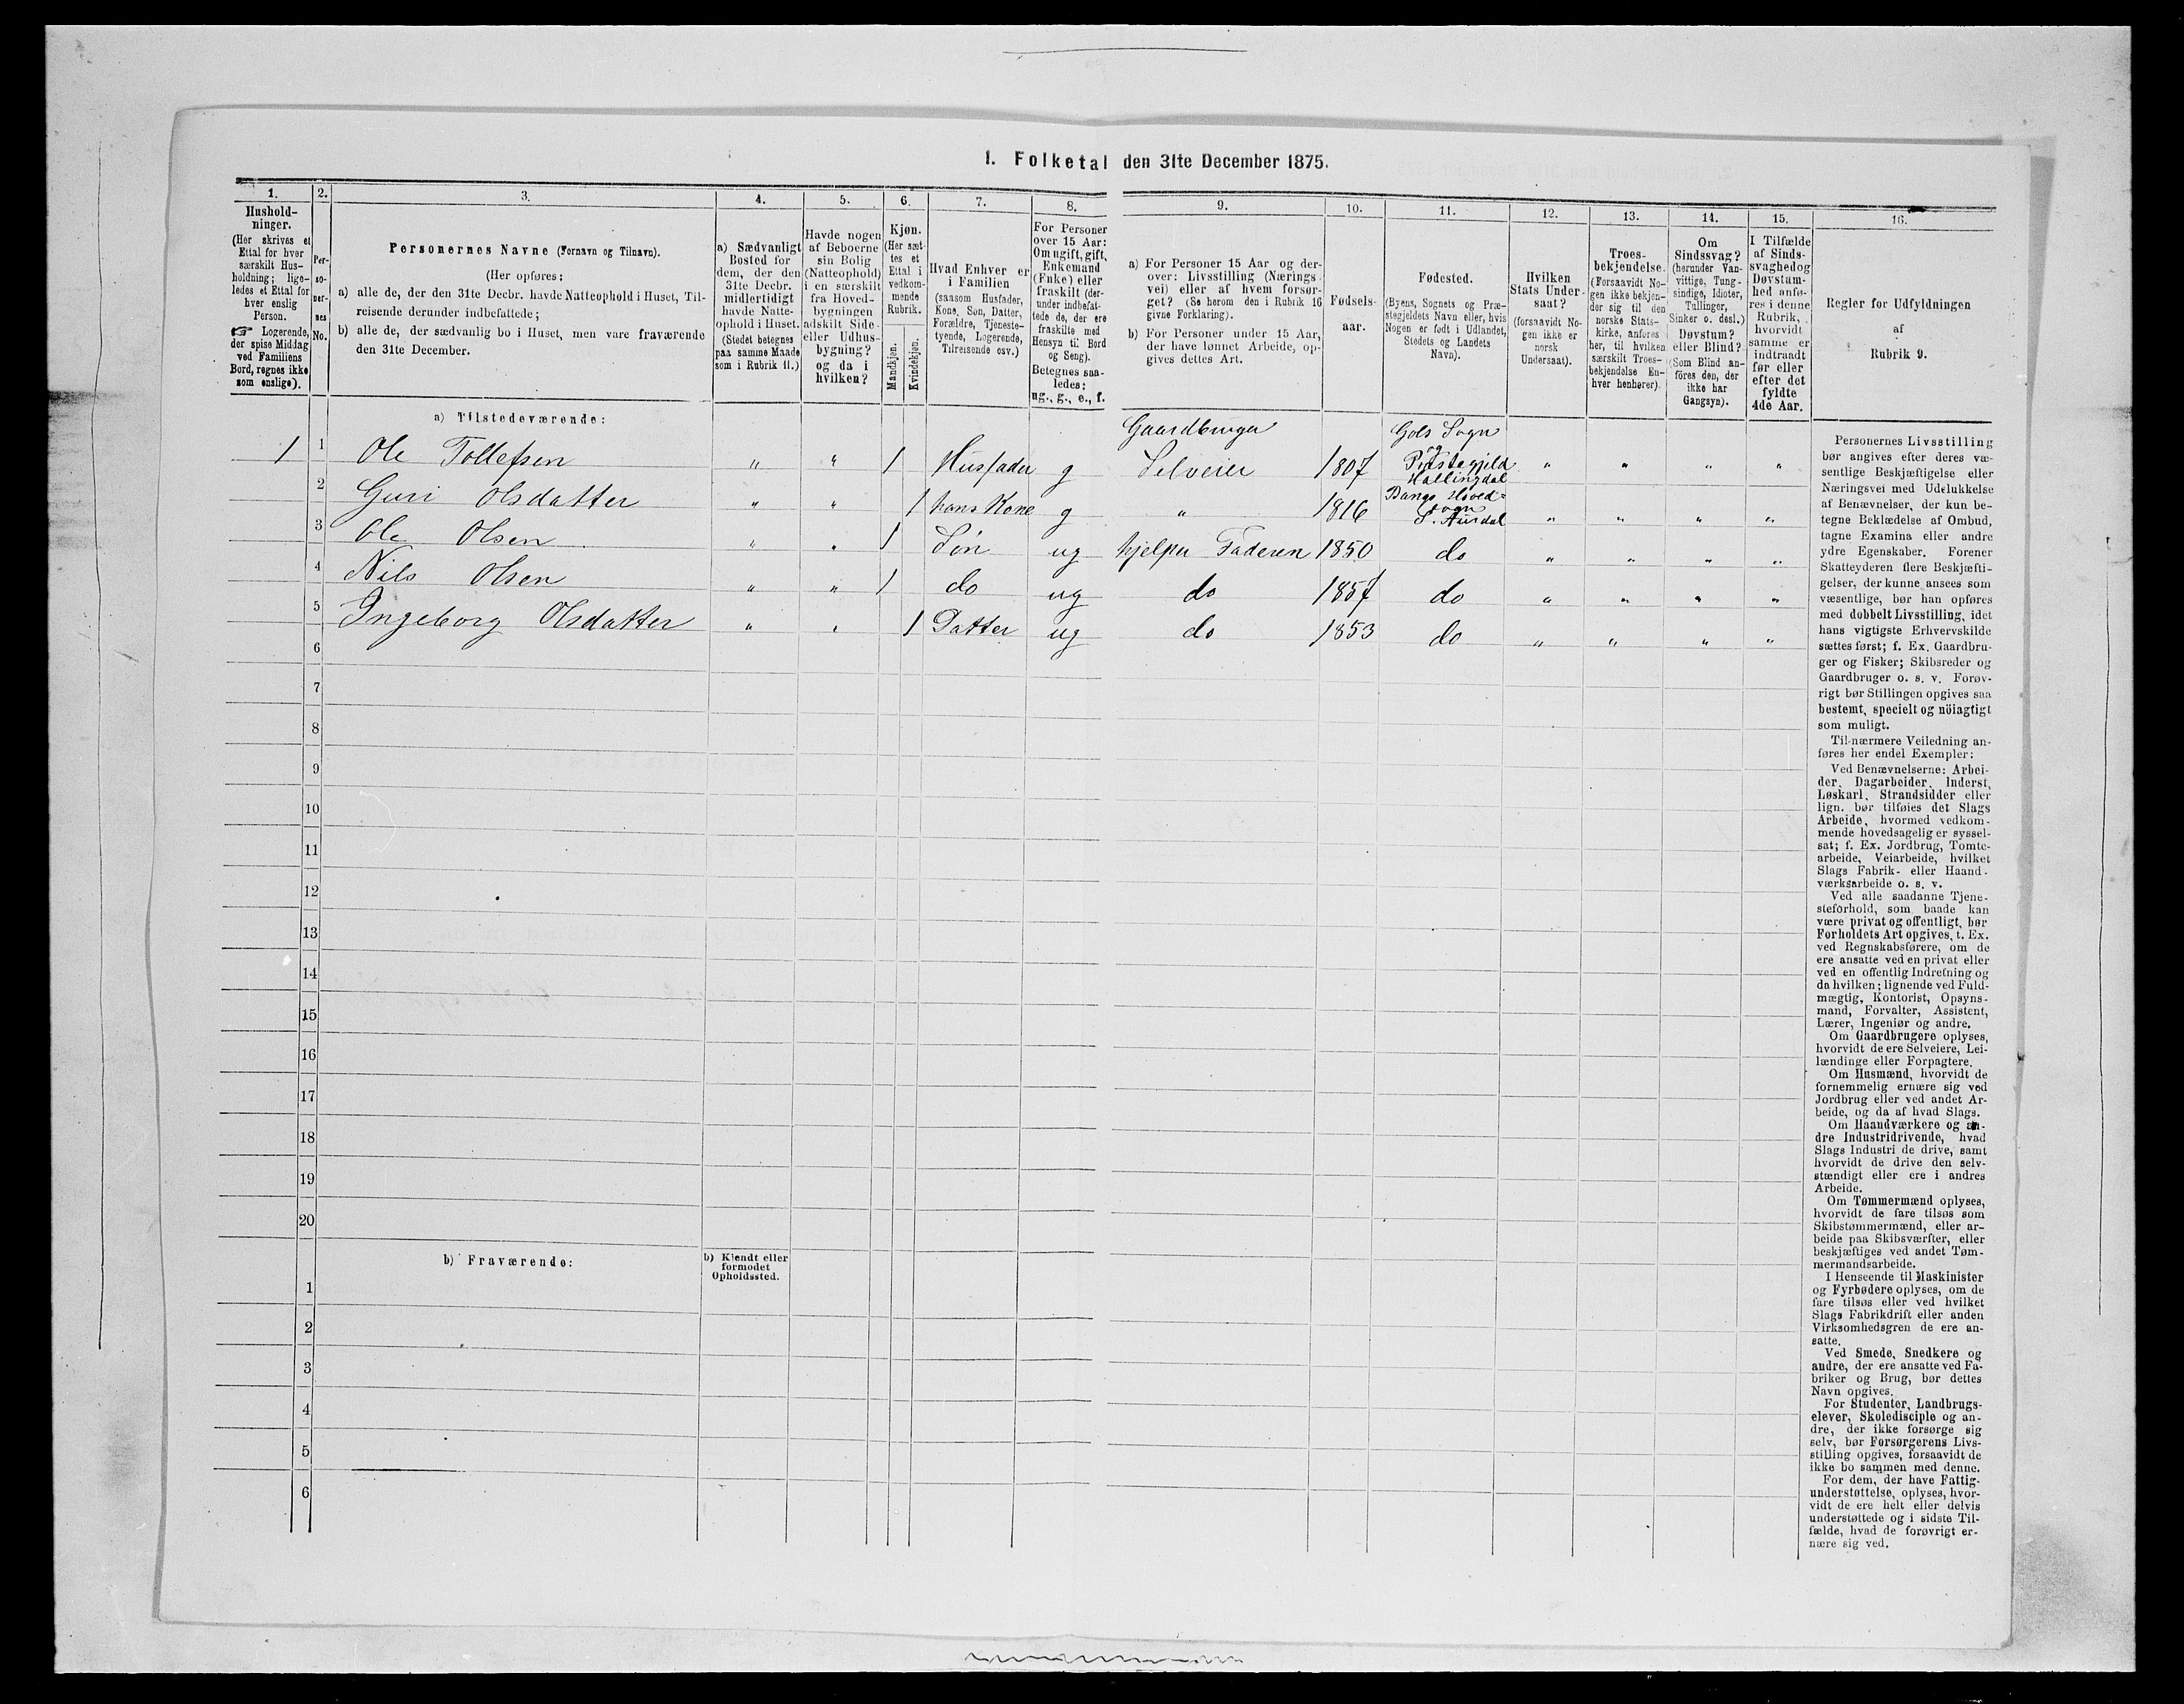 1. Folketal den 31te December 1875.
1.
Hushold-
ninger.
(Her skrives et
Ettal for hver
særskilt Hus-
holdning; lige-
ledes et Ettal for
hver enslig
Person.
☞ Logerende,
der spise Middag
ved Familiens
Bord, regnes ikke
som enslige).
2.
Per-
so-
ner-
nes
No.
3.
Personernes Navne (Fornavn og Tilnavn).
(Her opføres:
a) alle de, der den 31te Decbr. havde Natteophold i Huset, Til-
reisende derunder indbefattede;
b) alle de, der sædvanlig bo i Huset, men vare fraværende
den 31te December.
4.
a) Sædvanligt
Bosted for
dem, der den
31te Decbr.
midlertidigt
havde Natte-
ophold i Huset.
(Stedet betegnes
paa samme Maade
som i Rubrik 11.)
5.
Havde nogen
af Beboerne
sin Bolig
(Natteophold)
i en særskilt
fra Hoved-
bygningen
adskilt Side-
eller Udhus-
bygning?
og da i
hvilken?
6.
Kjøn.
(Her sæt-
tes et
Ettal i
vedkom-
mende
Rubrik.
Mandkjøn.
Kvindekjøn.
7.
Hvad Enhver er
i Familien
(saasom Husfader,
Kone, Søn, Datter,
Forældre, Tjeneste-
tyende, Logerende,
Tilreisende osv.)
8.
For Personer
over 15 Aar:
Om ugift, gift,
Enkemand
(Enke) eller
fraskilt (der-
under indbefat-
tede de, der ere
fraskilte med
Hensyn til Bord
og Seng).
Betegnes saa-
ledes:
ug., g., e., f.
9.
a) For Personer 15 Aar og der-
over: Livsstilling (Nærings-
vei) eller af hvem forsør-
get? (Se herom den i Rubrik 16
givne Forklaring).
b) For Personer under 15 Aar,
der have lønnet Arbeide, op-
gives dettes Art.
10.
Fødsels-
aar.
11.
Fødested.
(Byens, Sognets og Præ-
stegjeldets Navn eller, hvis
Nogen er født i Udlandet,
Stedets og Landets
Navn).
12.
Hvilken
Stats Under-
saat?
(forsaavidt No-
gen ikke er
norsk
Undersaat).
13.
Troes-
bekjendelse.
(Forsaavidt No-
gen ikke bekjen-
der sig til den
norske Stats-
kirke, anføres
her, til hvilken
særskilt Troes-
bekjendelse En-
hver henhører).
14.
Om
Sindssvag?
(herunder Van-
vittige, Tung-
sindige, Idioter,
Tullinger,
Sinker o. desl.)
Døvstum?
eller Blind?
(Som Blind an-
føres den, der
ikke har
Gangsyn).
15.
I Tilfælde
af Sinds-
svaghed og
Døvstum-
hed anfø-
res i denne
Rubrik,
hvorvidt
samme er
indtraadt
før eller
efter det
fyldte
4de Aar.
16.
Regler for Udfyldningen
af
Rubrik 9.
a) Tilstedeværende:
1 1 Ole Tollefsen " " 1 Husfader g Gaardbruger Selveier 1807 Gols Sogn og Præstegjeld Hallingdal " " " "
2 Guri Olsdatter " " 1 hans Kone g " 1816 Bangs Hoved= sogn S. Aurdal " " " "
3 Ole Olsen " " 1 Søn ug hjelper Faderen 1850 do " " " "
4 Nils Olsen " " 1 do ug do 1857 do " " " "
5 Ingeborg Olsdatter " " 1 Datter ug do 1853 do " " " "
6
7
8
9
10
11
12
13
14
15
16
17
18
19
20
b) Fraværende:
b) Kjendt eller
formodet
Opholdssted.
1
2
3
4
5
6
Personernes Livsstilling
bør angives efter deres væ-
sentlige Beskjæftigelse eller
Næringsvei med Udelukkelse
af Benævnelser, der kun be-
tegne Beklædelse af Ombud,
tagne Examina eller andre
ydre Egenskaber. Forener
Skatteyderen flere Beskjæfti-
gelser, der kunne ansees som
væsentlige, bør han opføres
med dobbelt Livsstilling, idet
hans vigtigste Erhvervskilde
sættes først; f. Ex. Gaardbru-
ger og Fisker; Skibsreder og
Gaardbruger o. s. v. Forøv-
rigt bør Stillingen opgives saa
bestemt, specielt og nöiagtigt
som muligt.
Til nærmere Veiledning an-
føres her endel Exempler:
Ved Benævnelserne: Arbei-
der, Dagarbeider, Inderst,
Løskarl, Strandsidder eller
lign. bør tilføies det Slags
Arbeide, hvormed vedkom-
mende hovedsagelig er syssel-
sat; f. Ex. Jordbrug, Tomte-
arbeide, Veiarbeide, hvilket
Slags Fabrik- eller Haand-
værksarbeide o. s. v.
Ved alle saadanne Tjene-
steforhold, som baade kan
være privat og offentligt, bør
Forholdets Art opgives, t. Ex.
ved Regnskabsførere, om de
ere ansatte ved en privat eller
ved en offentlig Indretning og
da hvilken; lignende ved Fuld-
mægtig, Kontorist, Opsyns-
mand, Forvalter, Assistent,
Lærer, Ingeniør og andre.
Om Gaardbrugere oplyses,
hvorvidt de ere Selveiere, Lei-
lændinge eller Forpagtere.
Om Husmænd, hvorvidt de
fornemmelig ernære sig ved
Jordbrug eller ved andet Ar-
beide, og da af hvad Slags.
Om Haandværkere og an-
dre Industridrivende, hvad
Slags Industri de drive, samt
hvorvidt de drive den selv-
stændigt eller ere i andres
Arbeide.
Om Tømmermænd oplyses,
hvorvidt de fare tilsøs som
Skibstømmermænd, eller ar-
beide paa Skibsværfter, eller
beskjæftiges ved andet Tøm-
mermandsarbeide.
I Henseende til Maskinister
og Fyrbødere oplyses, om de
fare tilsøs eller ved hvilket
Slags Fabrikdrift eller anden
Virksomhedsgren de ere an-
satte.
Ved Smede, Snedkere og
andre, der ere ansatte ved Fa-
briker og Brug, bør dettes
Navn opgives.
For Studenter, Landbrugs-
elever, Skoledisciple og an-
dre, der ikke forsørge sig
selv, bør Forsørgerens Livs-
stilling opgives, forsaavidt de
ikke bo sammen med denne.
For dem, der have Fattig-
understøttelse, oplyses, hvor-
vidt de ere helt eller delvis
understøttede og i sidste Til-
fælde, hvad de forøvrigt er-
nære sig ved.